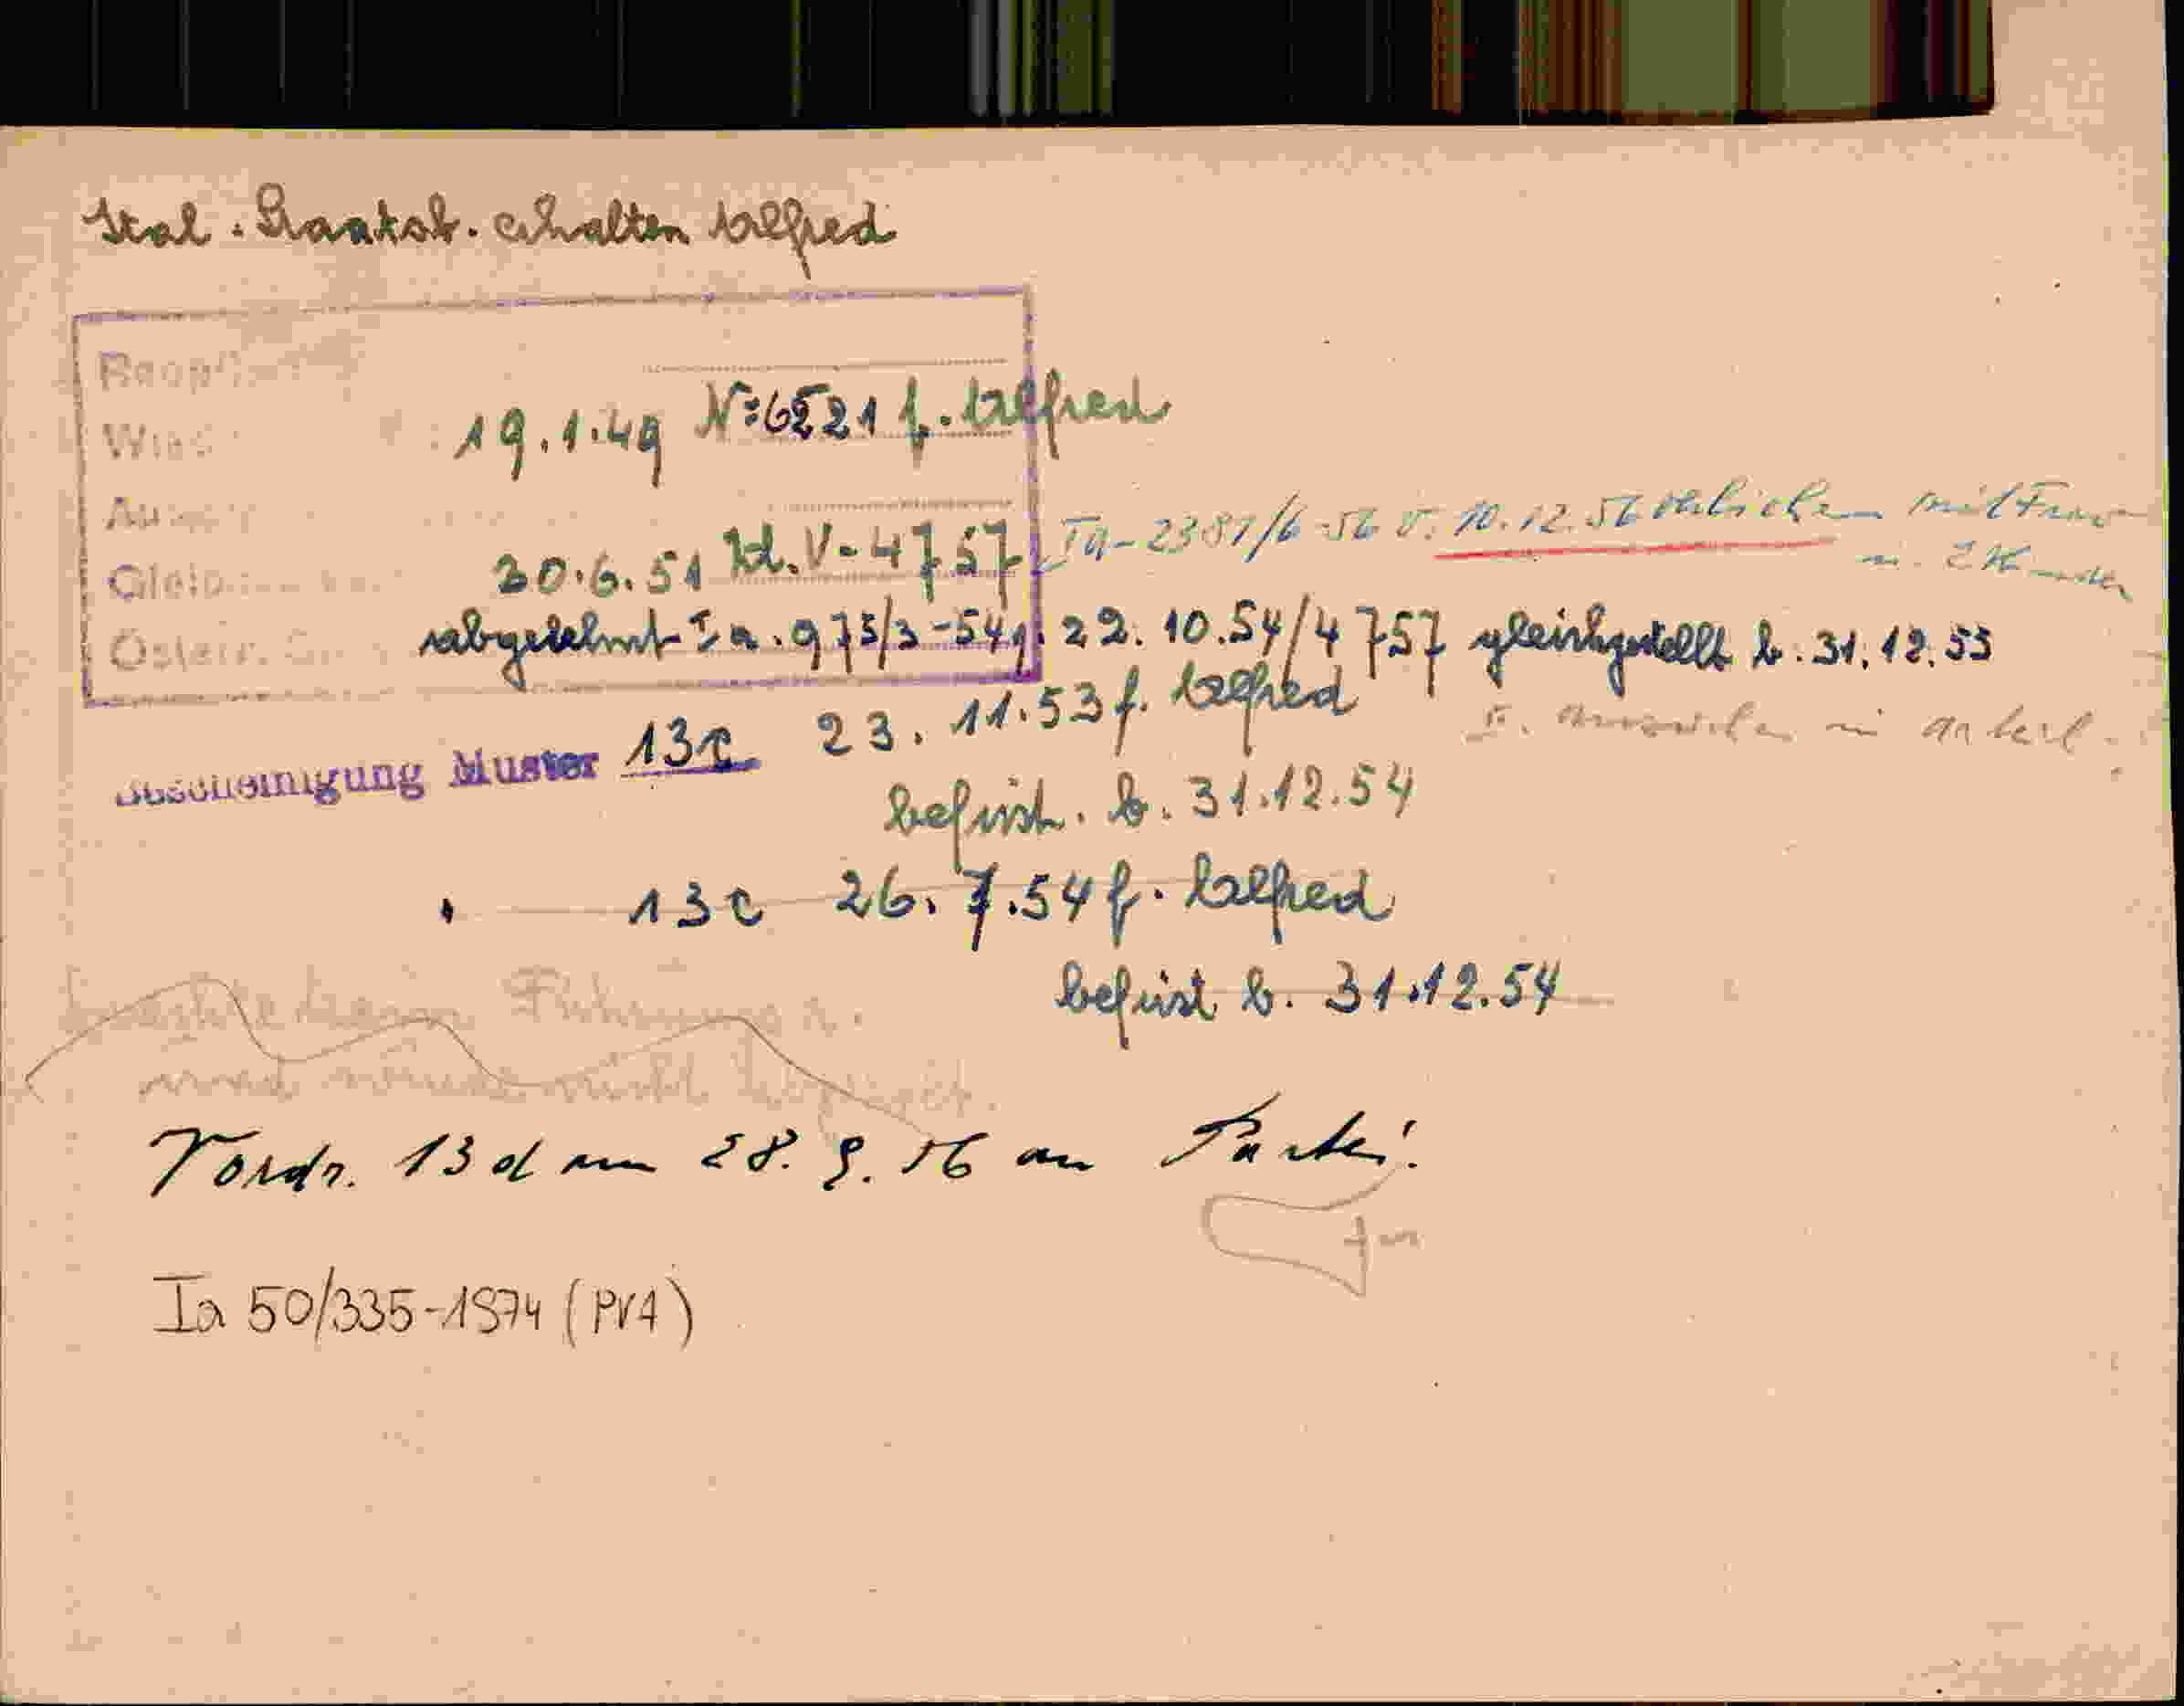 Ital. Staatsb. erhalten Alfred
19.1.49 N=6521 f. Alfred
30.6.51 Zl. V-4757
Ia-2381/6-56 v. 10.12.56 verliehen mit Frau
u. 2 Kindern
abgelehnt Ia. 975/3-54 22.10.54/4757 gleichgestellt b. 31.12.53
Bescheinigung Muster 13c 23.11.53 f. Alfred
befrist. b. 31.12.54
13c 26.7.54 f. Alfred
befrist b. 31.12.54
Vordr. 13d am 28.9.56 an Partei!
Ia 50/335-1974 (PVA)